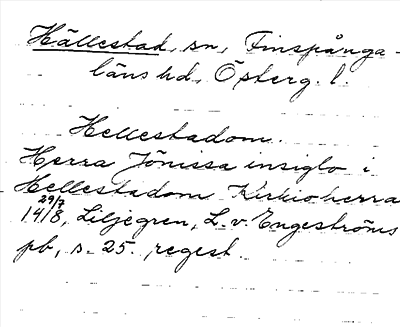 Hällestad, sn, Finspånga-
läns hd, Österg. l.
Hellestadom.
Herra Jönissa insiglo i
Hellestadom Kirkioherra
29/7
14/8, Liljegren, L. v. Engeströms
pb, s. 25. regest.